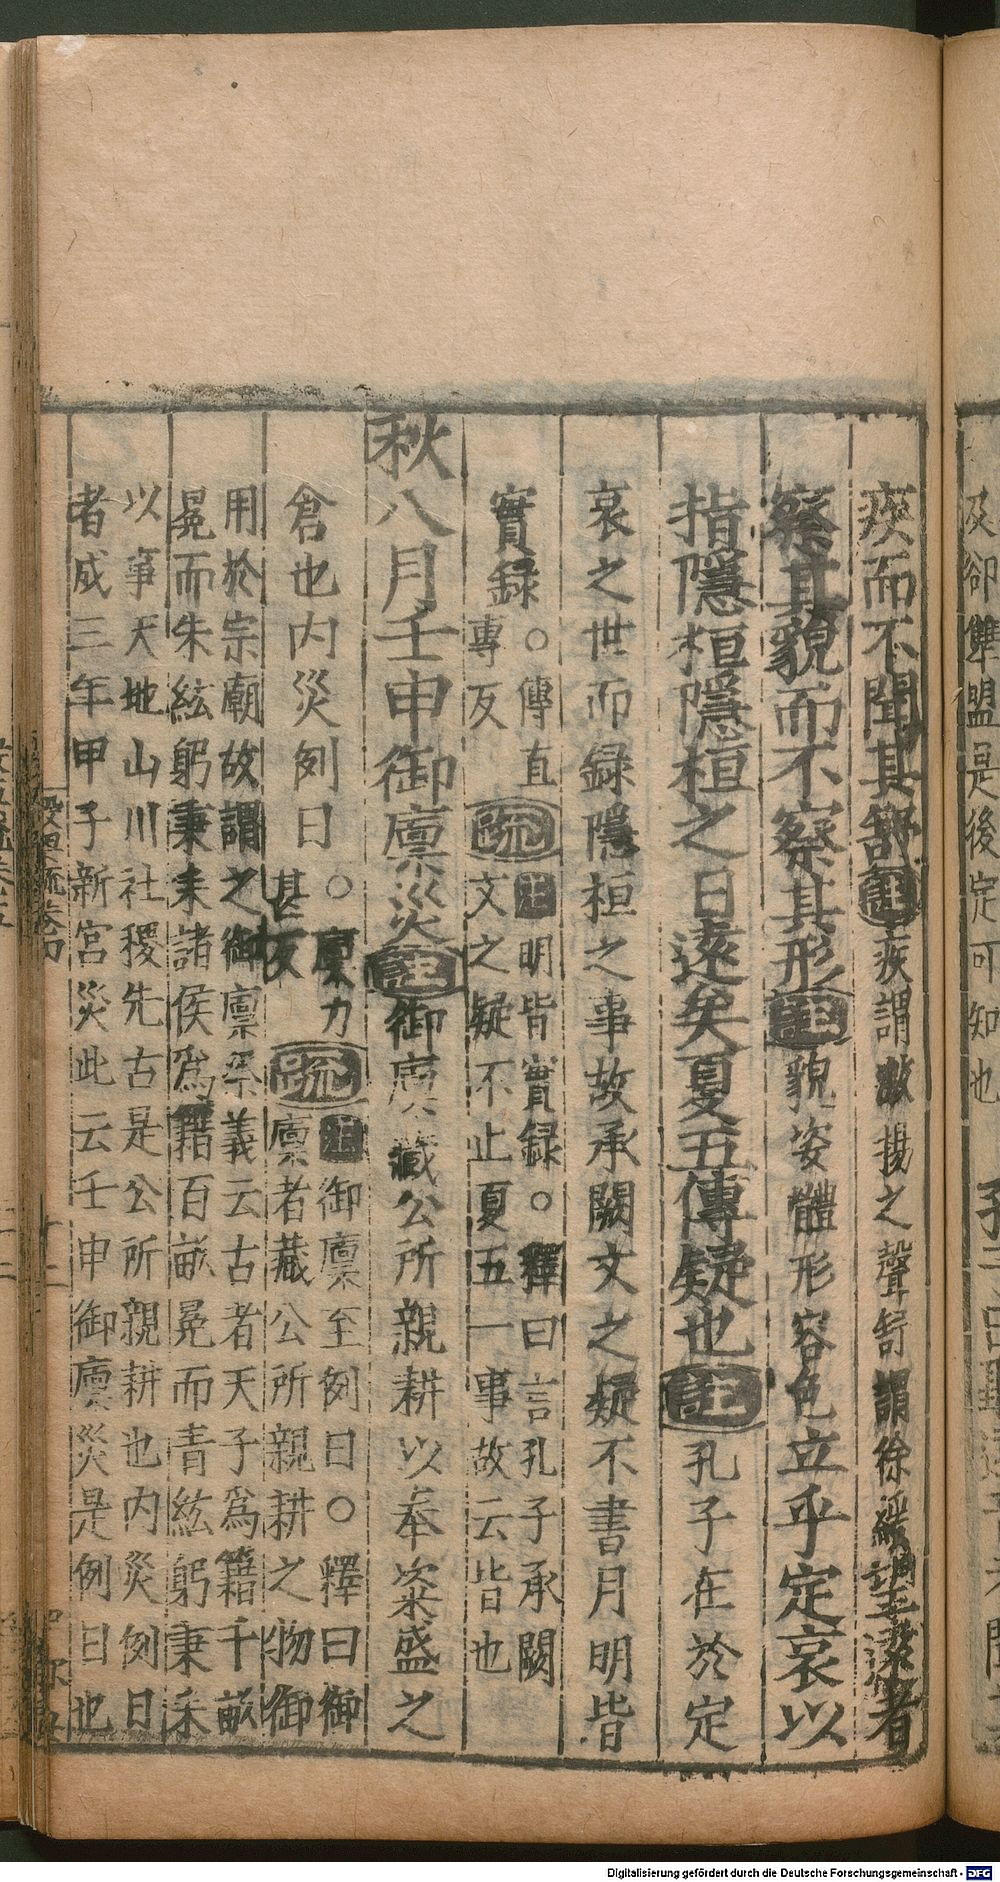 疾而不聞其舒註疾謂激揚之聲舒謂徐緩望遠者
察其貌而不察其形註貌姿體形容色立乎定哀以
指隱桓隱桓之日遠矣夏五傳疑也註孔子在於定
哀之世而録隱桓之事故承闕文之疑不書月明皆
實録。傳直
專反
疏註明皆實録。釋曰言孔子承闕
文之疑不止夏五一事故云皆也
秋八月壬申御廩災註御廩藏公所親耕以奉粢盛之
倉也内災例日。廩力
甚反
疏註御廩至例日。釋曰御
廩者藏公所親耕之物御
用於宗廟故謂之御廩祭義云古者天子爲籍千畝
冕而朱紘躬秉耒諸侯爲籍百畝冕而青紘躬秉耒
以事天地山川社稷先古是公所親耕也内災例日
者成三年甲子新宮災此云壬申御廩災是例日也
及卻雙盟是後定可知也
Digitalisierung gefördert durch die Deutsche Forschungsgemeinschaft - DFG